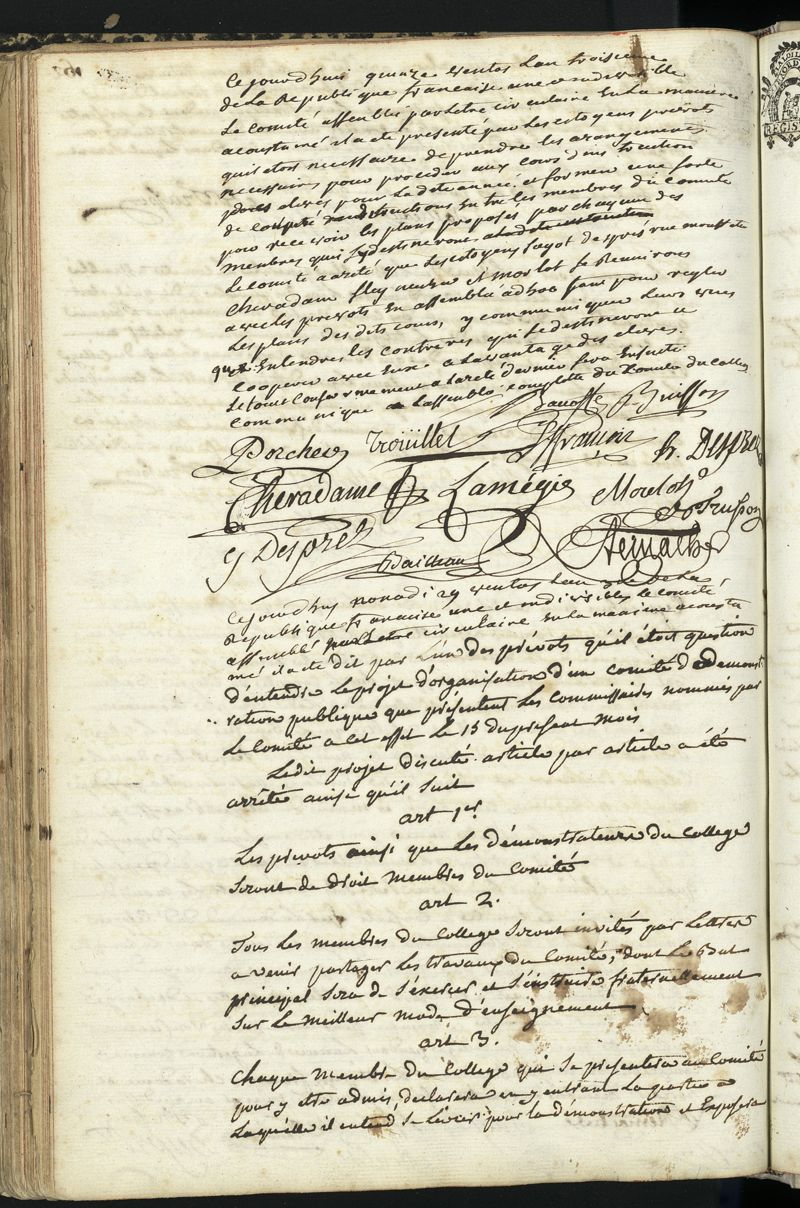 Ce jourdhui quinze ventos lan troisieme
de La Republique francaise une e indivisible
Le Comité assemblé par Letre circulaire En La maniere
acoutumé il a ete presenté par Les citoyens prevots
quil etoit necessaire de prendre les arangemens
necessaires pour proceder aux cours dinstruction
des eleves pour La dite année et former une liste
de Entre les membres du comité
pour recevoir les plans proposés par chaqune des
membres qui Sy destineront
Le comité a areté que Les citoyens fagot desprez
Cheradame et morlot Se Reuniront
avec les prevots En assemblé ad hoc pour regler
Les plans des dits cours, y communiquer Leurs vues
Entendres les confreres qui Se destineront a
cooperer avec Eux a Lavantage des eleves.
Le tout Conformement a Larété dernier sera Ensuite
Communiqué a Lassemblé complette du Comité du College
Bacoffe B. Buisson
Porcher trouillet ffrançois h. DESPREZ
Cheradame Lamégie Morelot
Y Desprez Bailleau
Ce jourdhuy nonodi 29 ventos Lan 3e de La
Republique francaise une et indivisibles Le comité
assemblé par Letre circulaire En La maniere acoutu
mé il a eté dit par L'un des prévots qu'il étoit question
d'entendre Le projet d'organisation d'un comité de demonst
ration publique que présentent Les commissaires nommés par
Le Comité a cet effet Le 15 du present mois
Ledit projet discuté article par article a été
arrêté ainsi qu'il suit
art 1er
Les prevots ainsi que Les démonstrateurs du College
Seront de droit membres du Comité
art 2.
Tous Les membres du College Seront invités par Lettres
a venir partager Les travaux du Comité, dont Le but
principal Sera de S'éxercer et S'instruire fraternellement
Sur Le meilleur mode d'enseignement
art 3.
Chaque membre du College qui Se presentera au Comité
pour y etre admis, declarera en y entrant La partie a
Laquelle il entend Se Livrer pour la démonstration et Exposera